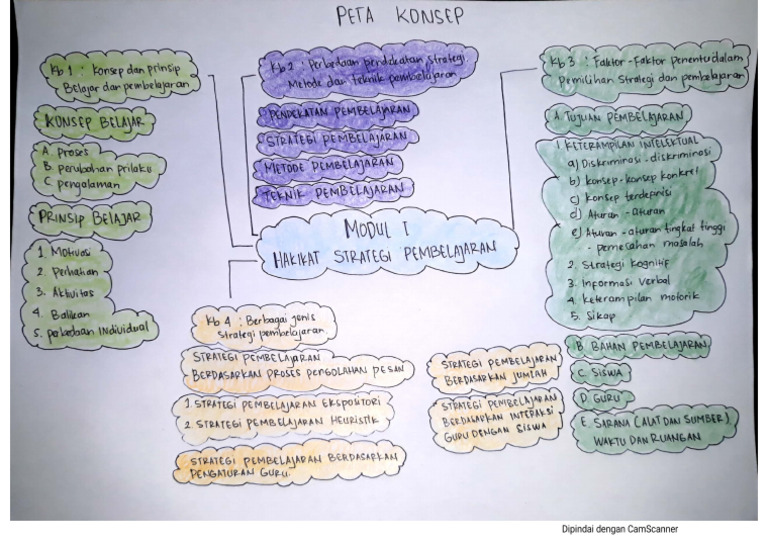 PETA KONSEP
Kb 1 : Konsep dan prinsip
Belajar dan pembelajaran
KONSEP BELAJAR
A. Proses
B. perubahan prilaku
C. pengalaman
PRINSIP BELAJAR
1. Motivasi
2. Perhatian
3. Aktivitas
4. Balikan
5. perbedaan Individual
Kb 2 : Perbedaan pendekatan strategi
Metode dan Teknik pembelajaran
PENDEKATAN PEMBELAJARAN
STRATEGI PEMBELAJARAN
METODE PEMBELAJARAN
TEKNIK PEMBELAJARAN
MODUL I
HAKIKAT STRATEGI PEMBELAJARAN
Kb 3 : Faktor-Faktor penentu dalam
Pemilihan Strategi dan pembelajaran
A. TUJUAN PEMBELAJARAN
1. KETERAMPILAN INTELEKTUAL
a) Diskriminasi-diskriminasi
b) konsep-konsep konkret
c) Konsep terdepnisi
d) Aturan-aturan
e) Aturan-aturan tingkat tinggi
- pemecahan masalah
2. Strategi kognitif
3. Informasi Verbal
4. keterampilan motorik
5. Sikap
B. BAHAN PEMBELAJARAN
C. SISWA
D. GURU
E. SARANA (ALAT DAN SUMBER),
WAKTU DAN RUANGAN
Kb 4 : Berbagai jenis
Strategi pembelajaran
STRATEGI PEMBELAJARAN
BERDASARKAN PROSES PENGOLAHAN PESAN
1. STRATEGI PEMBELAJARAN EKSPOSITORI
2. STRATEGI PEMBELAJARAN HEURISTIK
STRATEGI PEMBELAJARAN BERDASARKAN
PENGATURAN GURU.
STRATEGI PEMBELAJARAN
BERDASARKAN JUMLAH
STRATEGI PEMBELAJARAN
BERDASARKAN INTERAKSI
GURU DENGAN SISWA
Dipindai dengan CamScanner